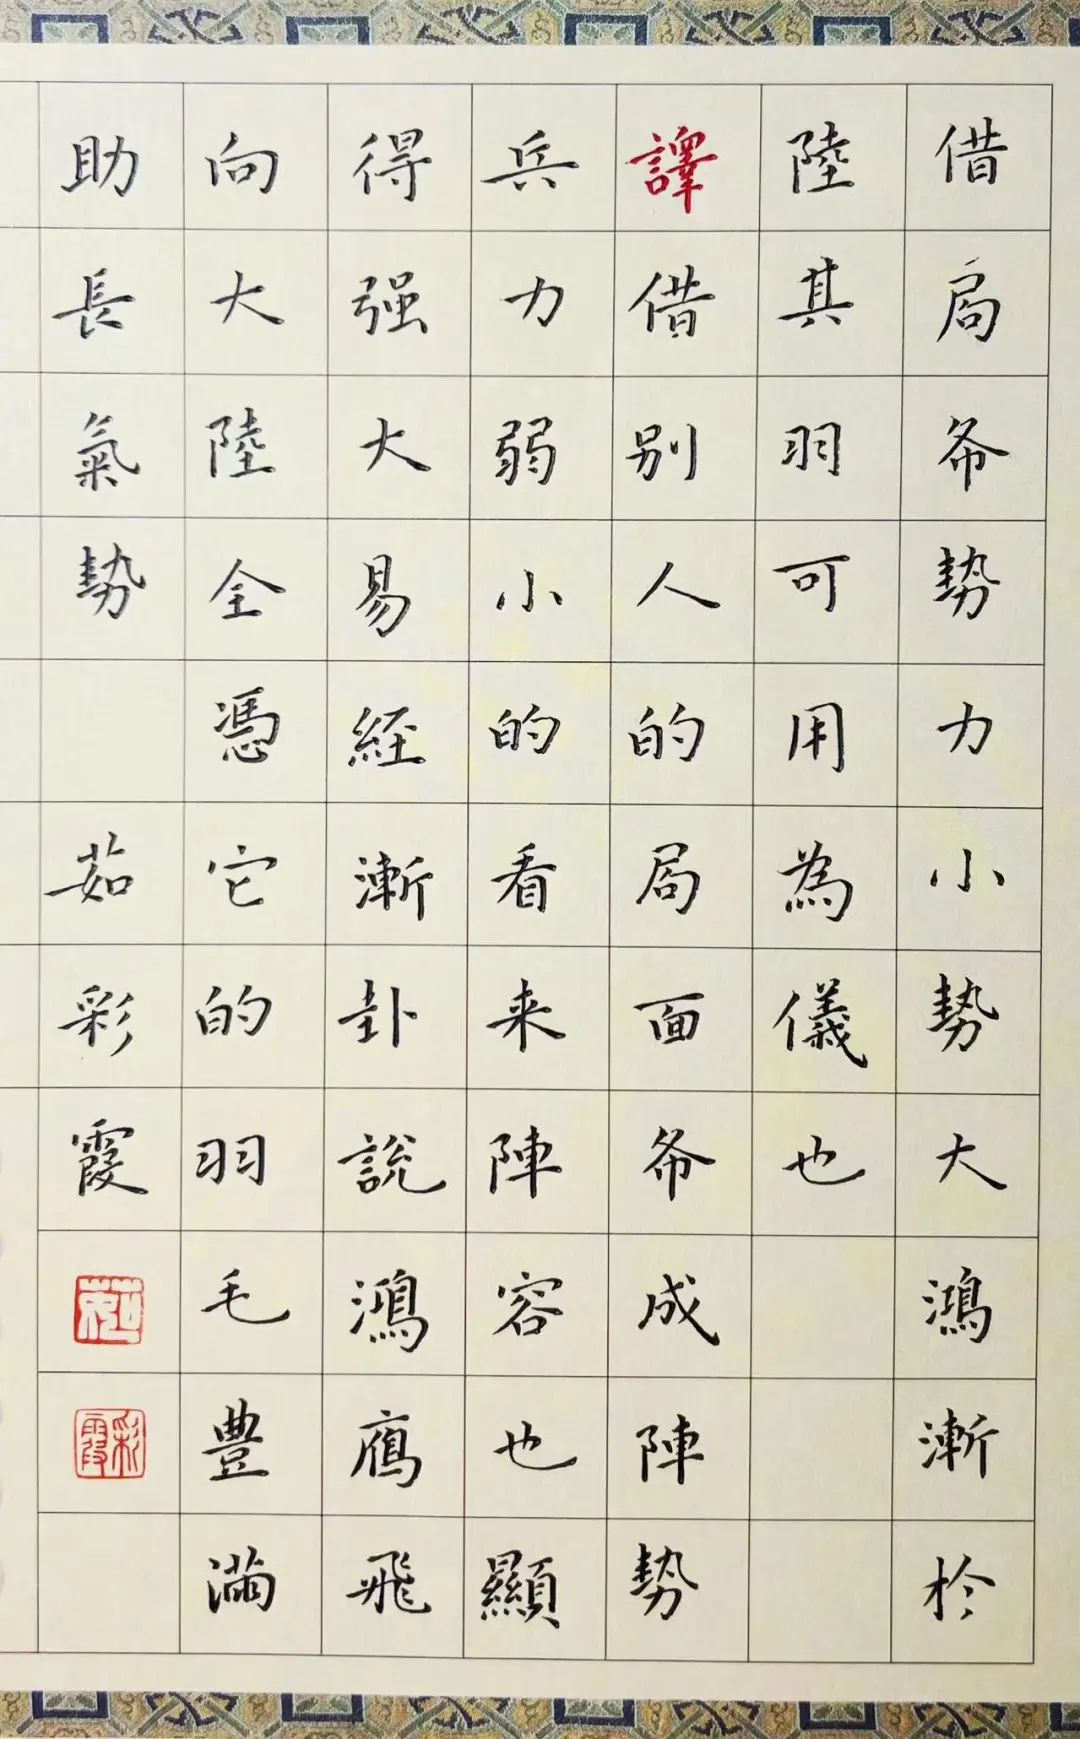 借局布勢力小勢大鴻漸於
陸其羽可用為儀也
譯借別人的局面布成陣勢
兵力弱小的看来陣容也顯
得强大易經漸卦說鴻鴈飛
向大陸全憑它的羽毛豊滿
助長氣勢 茹彩霞
茹
彩霞